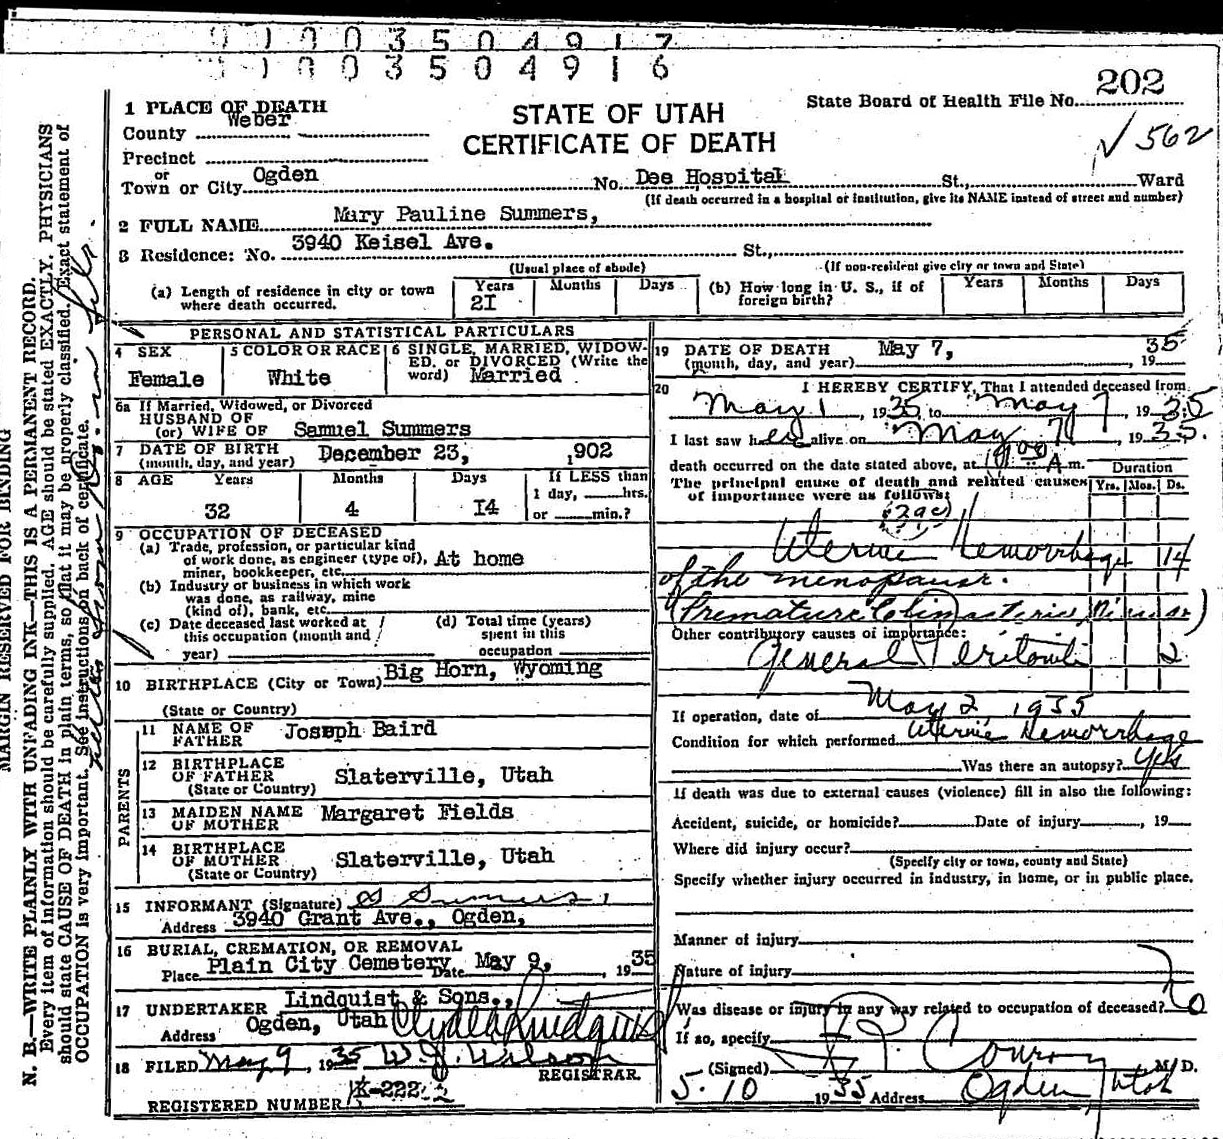 9 1 0 0 3 5 0 4 9 1 7
1 0 0 3 5 0 4 9 1 6
202
State Board of Health File No.
√ 562
STATE OF UTAH
CERTIFICATE OF DEATH
1 PLACE OF DEATH
County Weber
Precinct
or
Town or City Ogden No. Dee Hospital St., Ward
(If death occurred in a hospital or institution, give its NAME instead of street and number)
2 FULL NAME Mary Pauline Summers,
3 Residence: No. 3940 Keisel Ave. St.,
(Usual place of abode) (If non-resident give city or town and State)
(a) Length of residence in city or town where death occurred. Years 2I Months Days
(b) How long in U. S., if of foreign birth? Years Months Days
PERSONAL AND STATISTICAL PARTICULARS
4 SEX Female
5 COLOR OR RACE White
6 SINGLE, MARRIED, WIDOWED. or DIVORCED (Write the word) Married
6a If Married, Widowed, or Divorced
HUSBAND OF
(or) WIFE OF Samuel Summers
7 DATE OF BIRTH
(month, day, and year) December 23, 1902
8 AGE Years Months Days If LESS than
1 day, hrs.
32 4 I4 or min.?
9 OCCUPATION OF DECEASED
(a) Trade, profession, or particular kind
of work done, as engineer (type of), At home
miner, bookkeeper, etc.
(b) Industry or business in which work
was done, as railway, mine
(kind of), bank, etc.
(c) Date deceased last worked at this occupation (month and year)
(d) Total time (years) spent in this occupation
10 BIRTHPLACE (City or Town) Big Horn, Wyoming
(State or Country)
PARENTS
11 NAME OF FATHER Joseph Baird
12 BIRTHPLACE OF FATHER Slaterville, Utah
(State or Country)
13 MAIDEN NAME OF MOTHER Margaret Fields
14 BIRTHPLACE OF MOTHER Slaterville, Utah
(State or Country)
15 INFORMANT (Signature) S Summers
Address 3940 Grant Ave., Ogden,
16 BURIAL, CREMATION, OR REMOVAL
Place Plain City Cemetery Date May 9, 1935
17 UNDERTAKER Lindquist & Sons.,
Address Ogden, Utah Clyde Lindquist
18 FILED May 9, 1935 W. J. Wilson
REGISTRAR.
REGISTERED NUMBER
19 DATE OF DEATH May 7, 1935
(month, day, and year)
20 I HEREBY CERTIFY, That I attended deceased from
May 1, 1935 to May 7, 1935
I last saw her alive on May 7, 1935.
death occurred on the date stated above, at A m.
The principal cause of death and related causes of importance were as follows:
Duration
Yrs. Mos. Ds.
Uterine Hemorrhage 14
of the menopause.
(Premature Climacteric
Other contributory causes of importance:
General Peritonitis 2
If operation, date of May 2, 1935
Condition for which performed Uterine Hemorrhage
Was there an autopsy? Yes
If death was due to external causes (violence) fill in also the following:
Accident, suicide, or homicide? Date of injury , 19
Where did injury occur?
(Specify city or town, county and State)
Specify whether injury occurred in industry, in home, or in public place.
Manner of injury
Nature of injury
Was disease or injury in any way related to occupation of deceased? No
If so, specify
(Signed) Conroy M/D.
5-10 1935 Address Ogden Utah
MARGIN RESERVED FOR BINDING
N. B.—WRITE PLAINLY WITH UNFADING INK—THIS IS A PERMANENT RECORD.
Every item of information should be carefully supplied. AGE should be stated EXACTLY. PHYSICIANS
should state CAUSE OF DEATH in plain terms, so that it may be properly classified. Exact statement of
OCCUPATION is very important. See instructions on back of certificate.